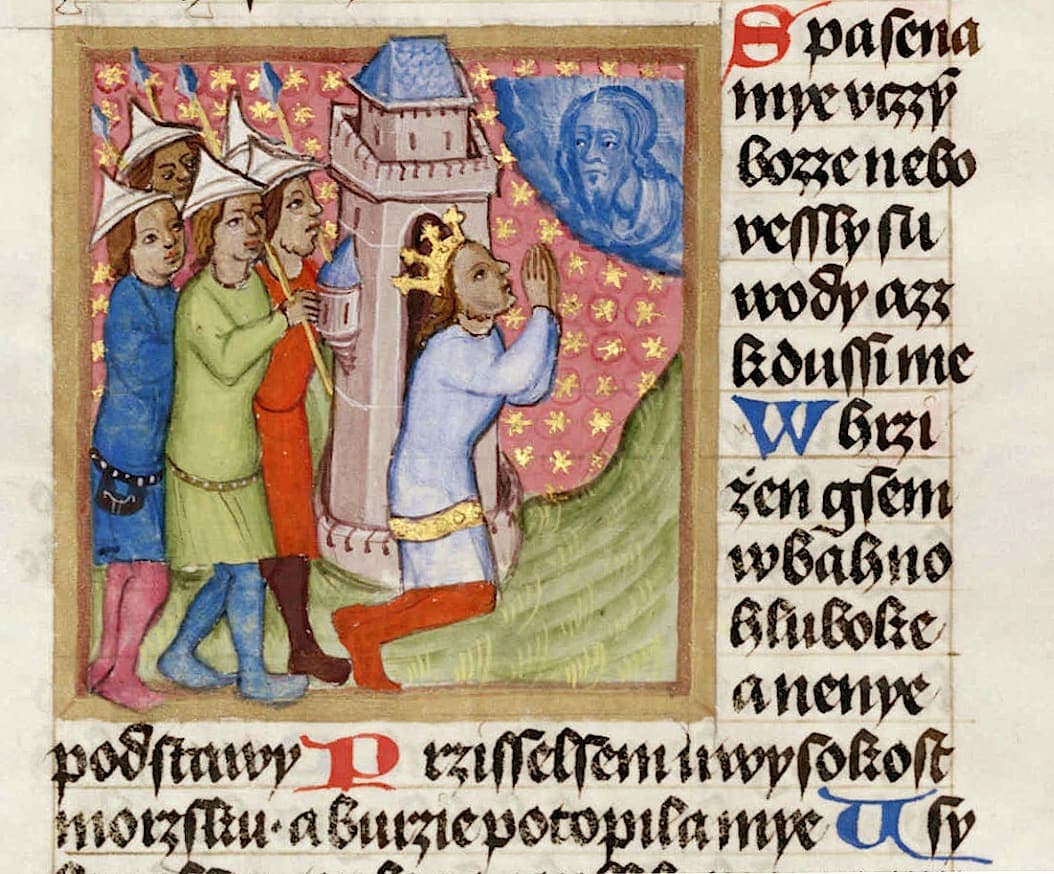 Spasena
mye vczzy̅
bozze nebo
vessly su
wody azz
kdussi me
Whrzi
żen gsem
wbahno
hluboke
a nenye
podstawy Przisselsem uwysokost
morzsku · a burzie potopila mye Usy